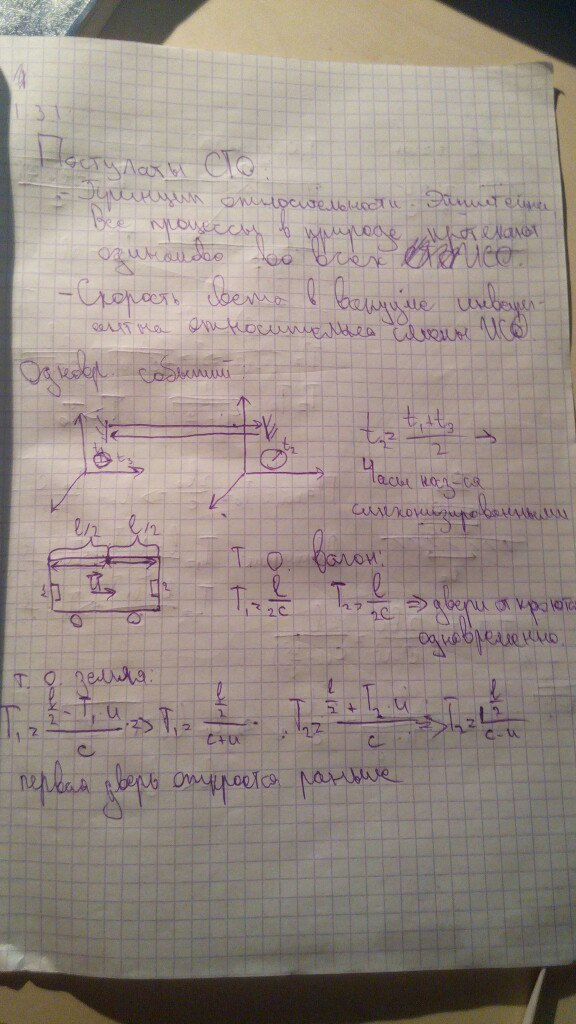 1 3 1
Постулаты СТО.
- Принцип относительности Эйнштейна
Все процессы в природе протекают
одинаково во всех ИСО.
- Скорость света в вакууме инвари-
антна относительно смены ИСО
Одновр. событий:
t₃
t₂
t₂ = (t₁+t₃)/2 →
Часы наз-ся
синхронизированными
l/2 l/2
u⃗
1 2
Т. О. вагон:
T₁ = l/2c T₂ = l/2c ⇒ двери откроются
одновременно.
Т. О. земля:
T₁ = (l/2 - T₁u)/c ⇒ T₁ = (l/2)/(c+u) . T₂ = (l/2 + T₂·u)/c ⇒ T₂ = (l/2)/(c-u)
первая дверь откроется раньше